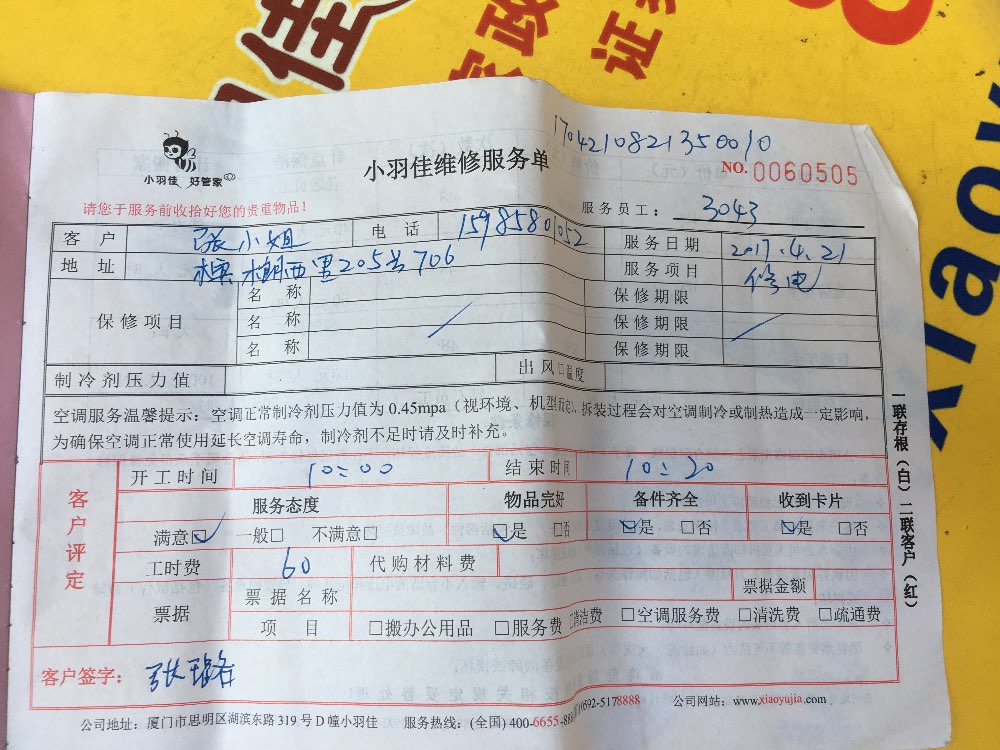 家政
证
xiaoy
17042108213500 10
小羽佳 好管家
小羽佳维修服务单
NO. 0060505
请您于服务前收拾好您的贵重物品！
服务员工： 3043
客 户 张小姐 电 话 15985801052 服务日期 2017.4.21
地 址 槟榔西里205号706 服务项目 修电
保修项目 名 称 保修期限
名 称 保修期限
名 称 保修期限
制冷剂压力值 出风口温度
空调服务温馨提示：空调正常制冷剂压力值为 0.45mpa（视环境、机型而定），拆装过程会对空调制冷或制热造成一定影响，
为确保空调正常使用延长空调寿命，制冷剂不足时请及时补充。
客户评定 开工时间 10:00 结束时间 10:20
服务态度 物品完好 备件齐全 收到卡片
满意☑ 一般□ 不满意□ ☑是 □否 ☑是 □否 ☑是 □否
工时费 60 代购材料费
票据 票据名称 票据金额
项 目 □搬办公用品 □服务费 □清洁费 □空调服务费 □清洗费 □疏通费
客户签字： 张璐
公司地址：厦门市思明区湖滨东路 319 号 D 幢小羽佳 服务热线：(全国) 400-6655-88 0592-5178888 公司网站：www.xiaoyujia.com
一联存根（白）二联客户（红）